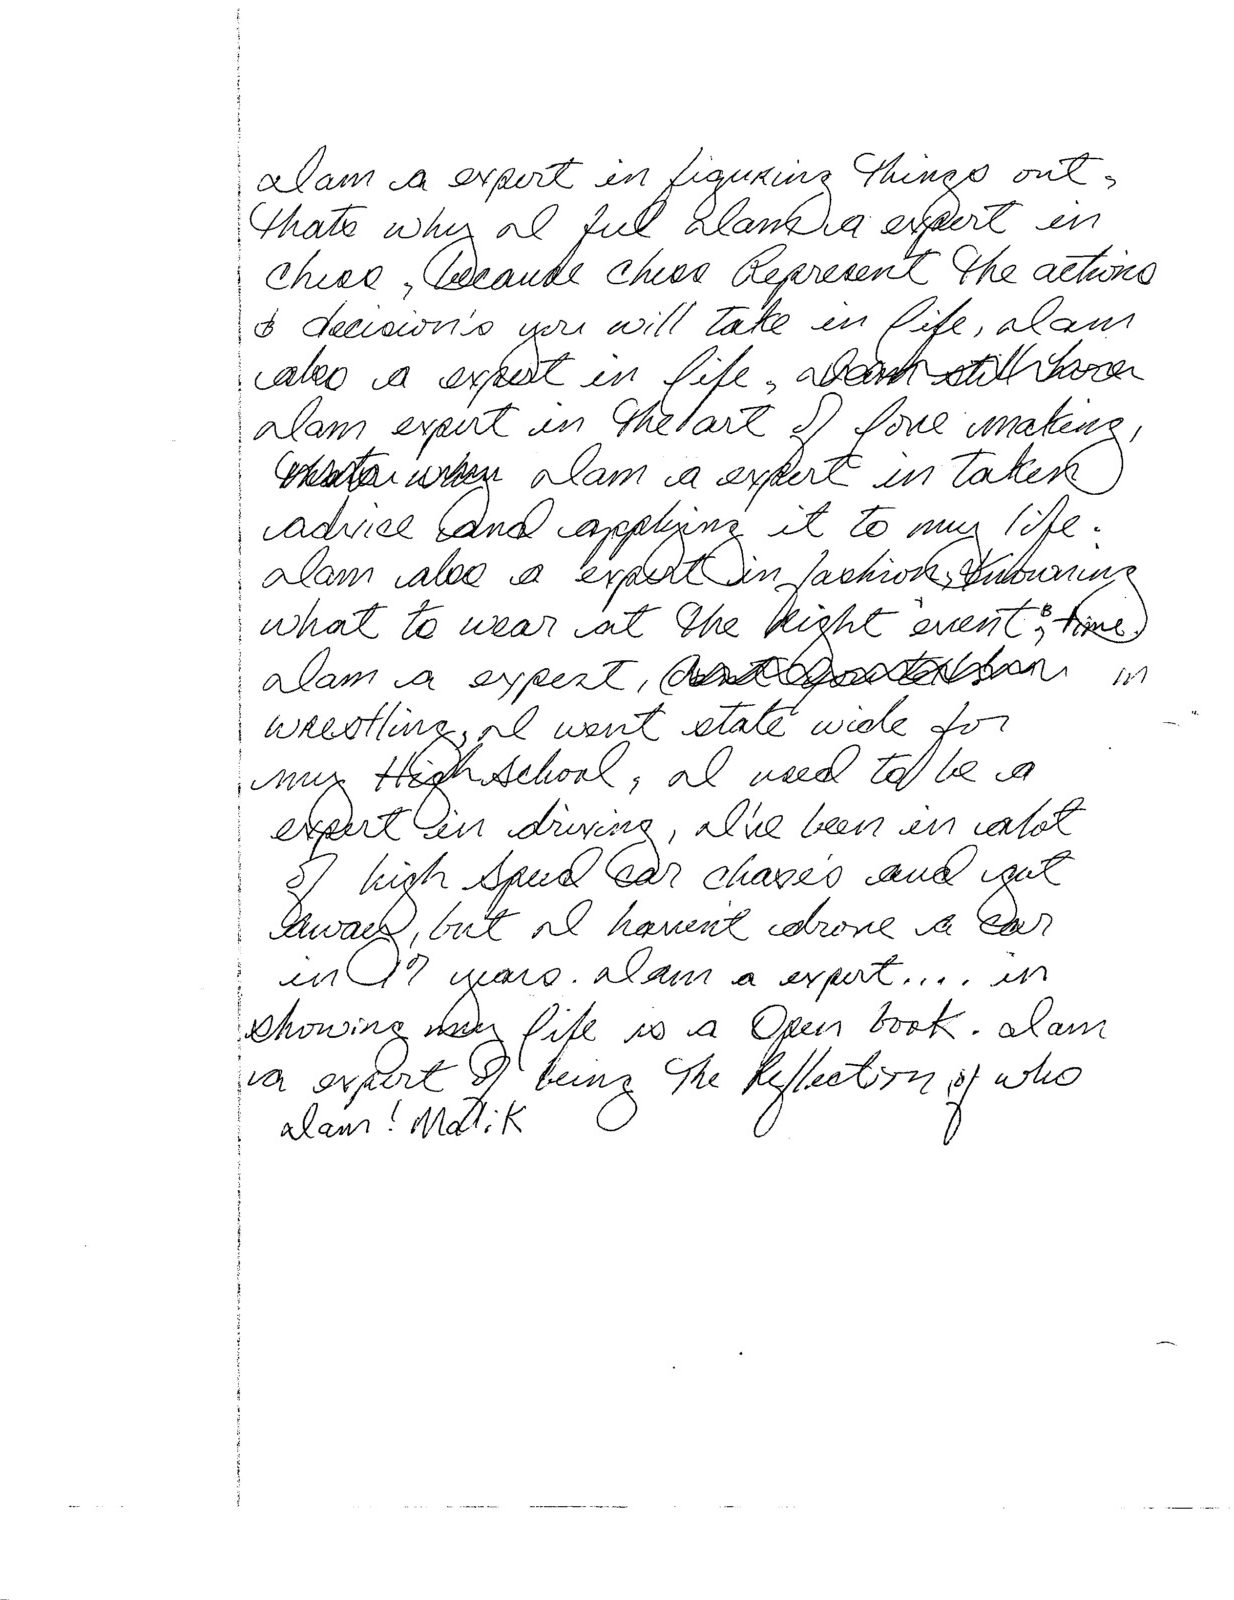 I am a expert in figuring things out,
thats why I feel I am a expert in
chess, because chess Represent the actions
& decision's you will take in life, I am
also a expert in life,
I am expert in the art of love making,
I am a expert in taken
advice and applying it to my life.
I am also a expert in fashion, Knowing
what to wear at the Right event, & time.
I am a expert, in
wrestling, I went state wide for
my High school, I used to be a
expert in driving, I've been in alot
of high speed car chases and got
away, but I haven't drove a car
in 17 years. I am a expert.... in
showing my life is a Open book. I am
a expert of being the Reflection of who
I am! Malik